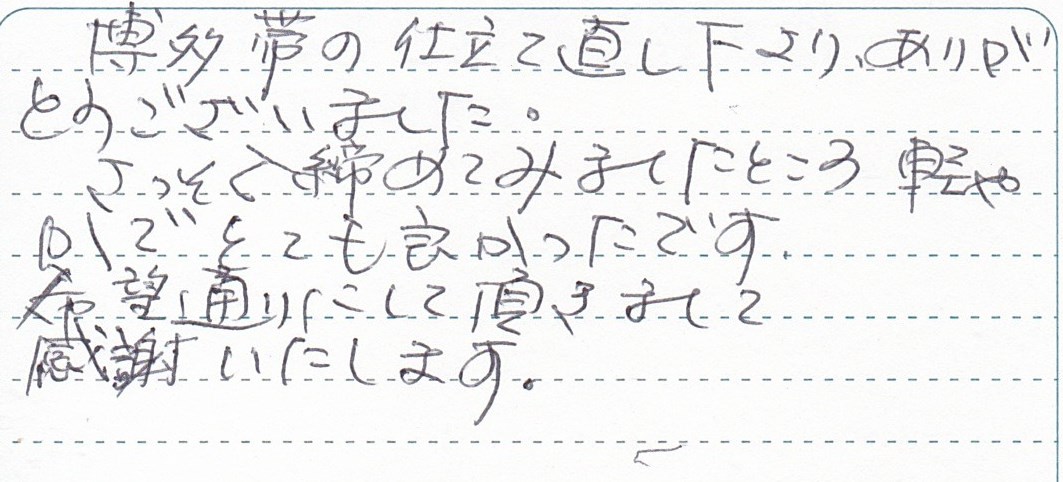 博多帯の仕立て直し下さり、ありが
とうございました。
さっそく締めてみましたところ軽や
かでとても良かったです。
希望通りにして頂きまして
感謝いたします。